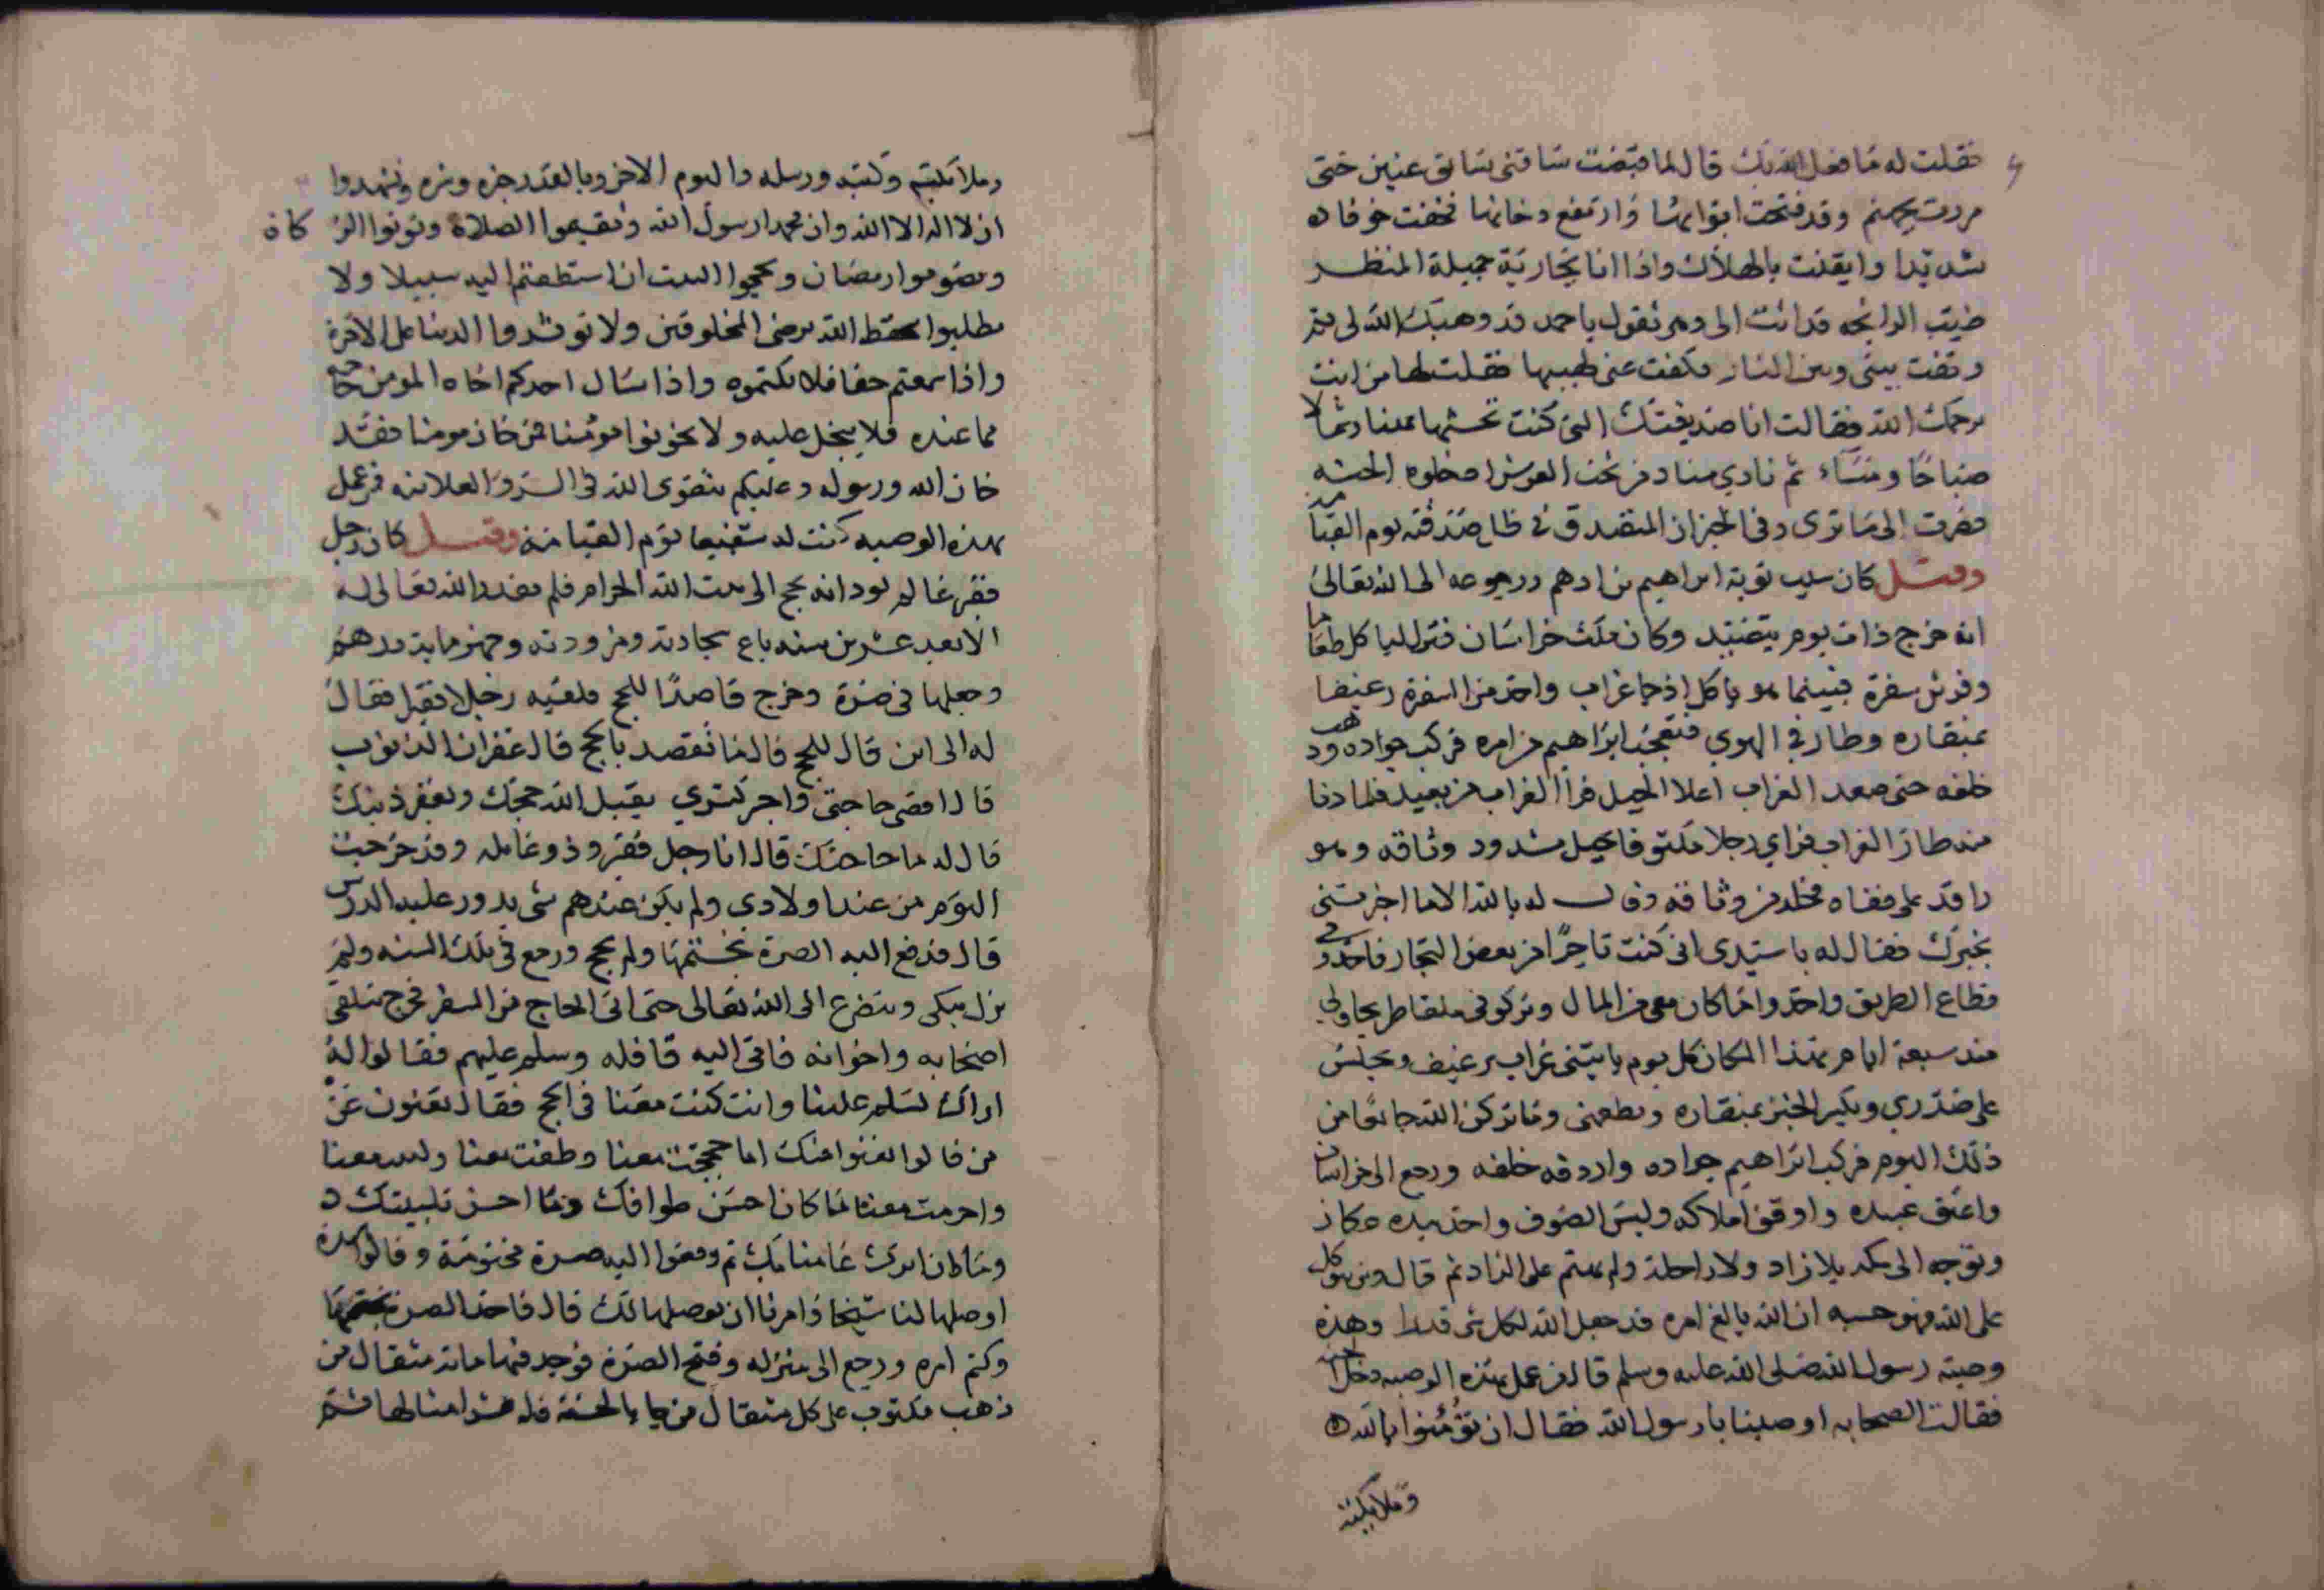 فقلت له ما فعل الله بك قال لما قبضت ساقنى سائق عنيف حتى
مررت بجهنم وقد فتحت ابوابها وارتفع دخانها فخفت خوفا
شديدا وايقنت بالهلاك واذا انا بجارية جميلة المنظر
طيب الرائحه قد اتت الى وهى تقول يا حمد قد وهبك الله لى ثم
وقفت بينى وبين النار فكفت عنى لهيبها فقلت لها من انت
يرحمك الله فقالت انا صديقتك التى كنت
صباحا ومساء ثم نادي مناد من تحت العرش ادخلوه الجنه
فصرت الى ما ترى وفى الخبر ان المتصدق فى ظل صدقته يوم القيامه
وقيل كان سبب توبة ابراهيم بن ادهم ورجوعه الى الله تعالى
انه خرج ذات يوم يتصيد وكان ملك خراسان فنزل لياكل طعاما
وفرش سفرة فبينما هو ياكل اذ جا غراب واخذ من السفرة رغيفا
بمنقاره وطار في الهوي فتعجب ابراهيم من امره فركب جواده وذهب
خلفه حتى صعد الغراب اعلا الجبل فراا الغراب من بعيد فلما دنا
منه طار الغراب فراي رجلا مكتوفا بحبل مشدود وثاقه وهو
راقد على قفاه فحله من وثاقه وقال له بالله الا ما اخبرتنى
بخبرك فقال له يا سيدى انى كنت تاجرا من بعض التجار فاخذونى
قطاع الطريق واخذوا ما كان معى من المال وتركونى ملقا طريحا ولي
منذ سبعة ايام بهذا المكان كل يوم ياتينى غراب برغيف ويجلس
على صدري ويكسر الخبز بمنقاره ويطعمنى وما تركنى الله جائعا من
ذلك اليوم فركب ابراهيم جواده واردفه خلفه ورجع الى خراسان
واعتق عبيده واوقف املاكه ولبس الصوف واخذ بيده عكاز
وتوجه الى مكه بلا زاد ولا راحلة ولم يهتم على الزاد ثم قال ومن يتوكل
على الله فهو حسبه ان الله بالغ امره قد جعل الله لكل شى قدرا وهذه
وصية رسول الله صلى الله عليه وسلم قال من عمل بهذه الوصيه دخل الجنه
فقالت الصحابه اوصينا يا رسول الله فقال ان تؤمنوا بالله
وملايكته
وملائكته وكتبه ورسله واليوم الاخر وبالقدر خيره وشره وتشهدوا
ان لا اله الا الله وان محمدا رسول الله وتقيموا الصلاة وتوتوا الزكاة
وتصوموا رمضان وتحجوا البيت ان استطعتم اليه سبيلا ولا
تطلبوا سخط الله برضى المخلوقين ولا توثروا الدنيا على الاخرة
واذا سمعتم حقا فلا تكتموه واذا سال احدكم اخاه المومن حاجه
مما عنده فلا يبخل عليه ولا تخونوا مؤمنا فمن خان مومنا فقد
خان الله ورسوله وعليكم بتقوى الله فى السر والعلانيه فمن عمل
بهذه الوصيه كنت له شفيعا يوم القيامة وقيل كان رجل
فقير يود انه يحج الى بيت الله الحرام فلم يقدر الله تعالى له
الا بعد عشرين سنه باع سجادته ومزودته وجهز ماية درهم
وجعلها فى صرة وخرج قاصدا للحج فلقيه رجلا فقيرا فقال
له الى اين قال للحج قال ما تقصد بالحج قال غفران الذنوب
قال اقض حاجتى واجبر كسري يقبل الله حجك ويغفر ذنبك
قال له ما حاجتك قال انا رجل فقير وذو عائله وقد خرجت
اليوم من عند اولادي ولم يكن عندهم شى
قال فدفع اليه الصرة بختمها ولم يحج ورجع فى تلك السنه ولم
يزل يبكى ويتضرع الى الله تعالى حتى اتى الحاج من السفر فخرج يتلقى
اصحابه واخوانه فاتى اليه قافله وسلم عليهم فقالوا له
اراك تسلم علينا وانت كنت معنا فى الحج فقال تعنون عن
من قالوا نعنوا منك اما حججت معنا وطفت معنا ولبيت معنا
واحرمت معنا ما كان احسن طوافك وما احسن تلبيتك
وما كان ابرك عامنا بك ثم دفعوا اليه صرة مختومة وقالوا هذه
اوصلها لنا شيخا وامرنا ان نوصلها لك قال فاخذ الصره بختمها
وكتم امره ورجع الى منزله وفتح الصرة فوجد فيها مائة مثقال من
ذهب مكتوب على كل مثقال من جاء بالحسنة فله عشر امثالها